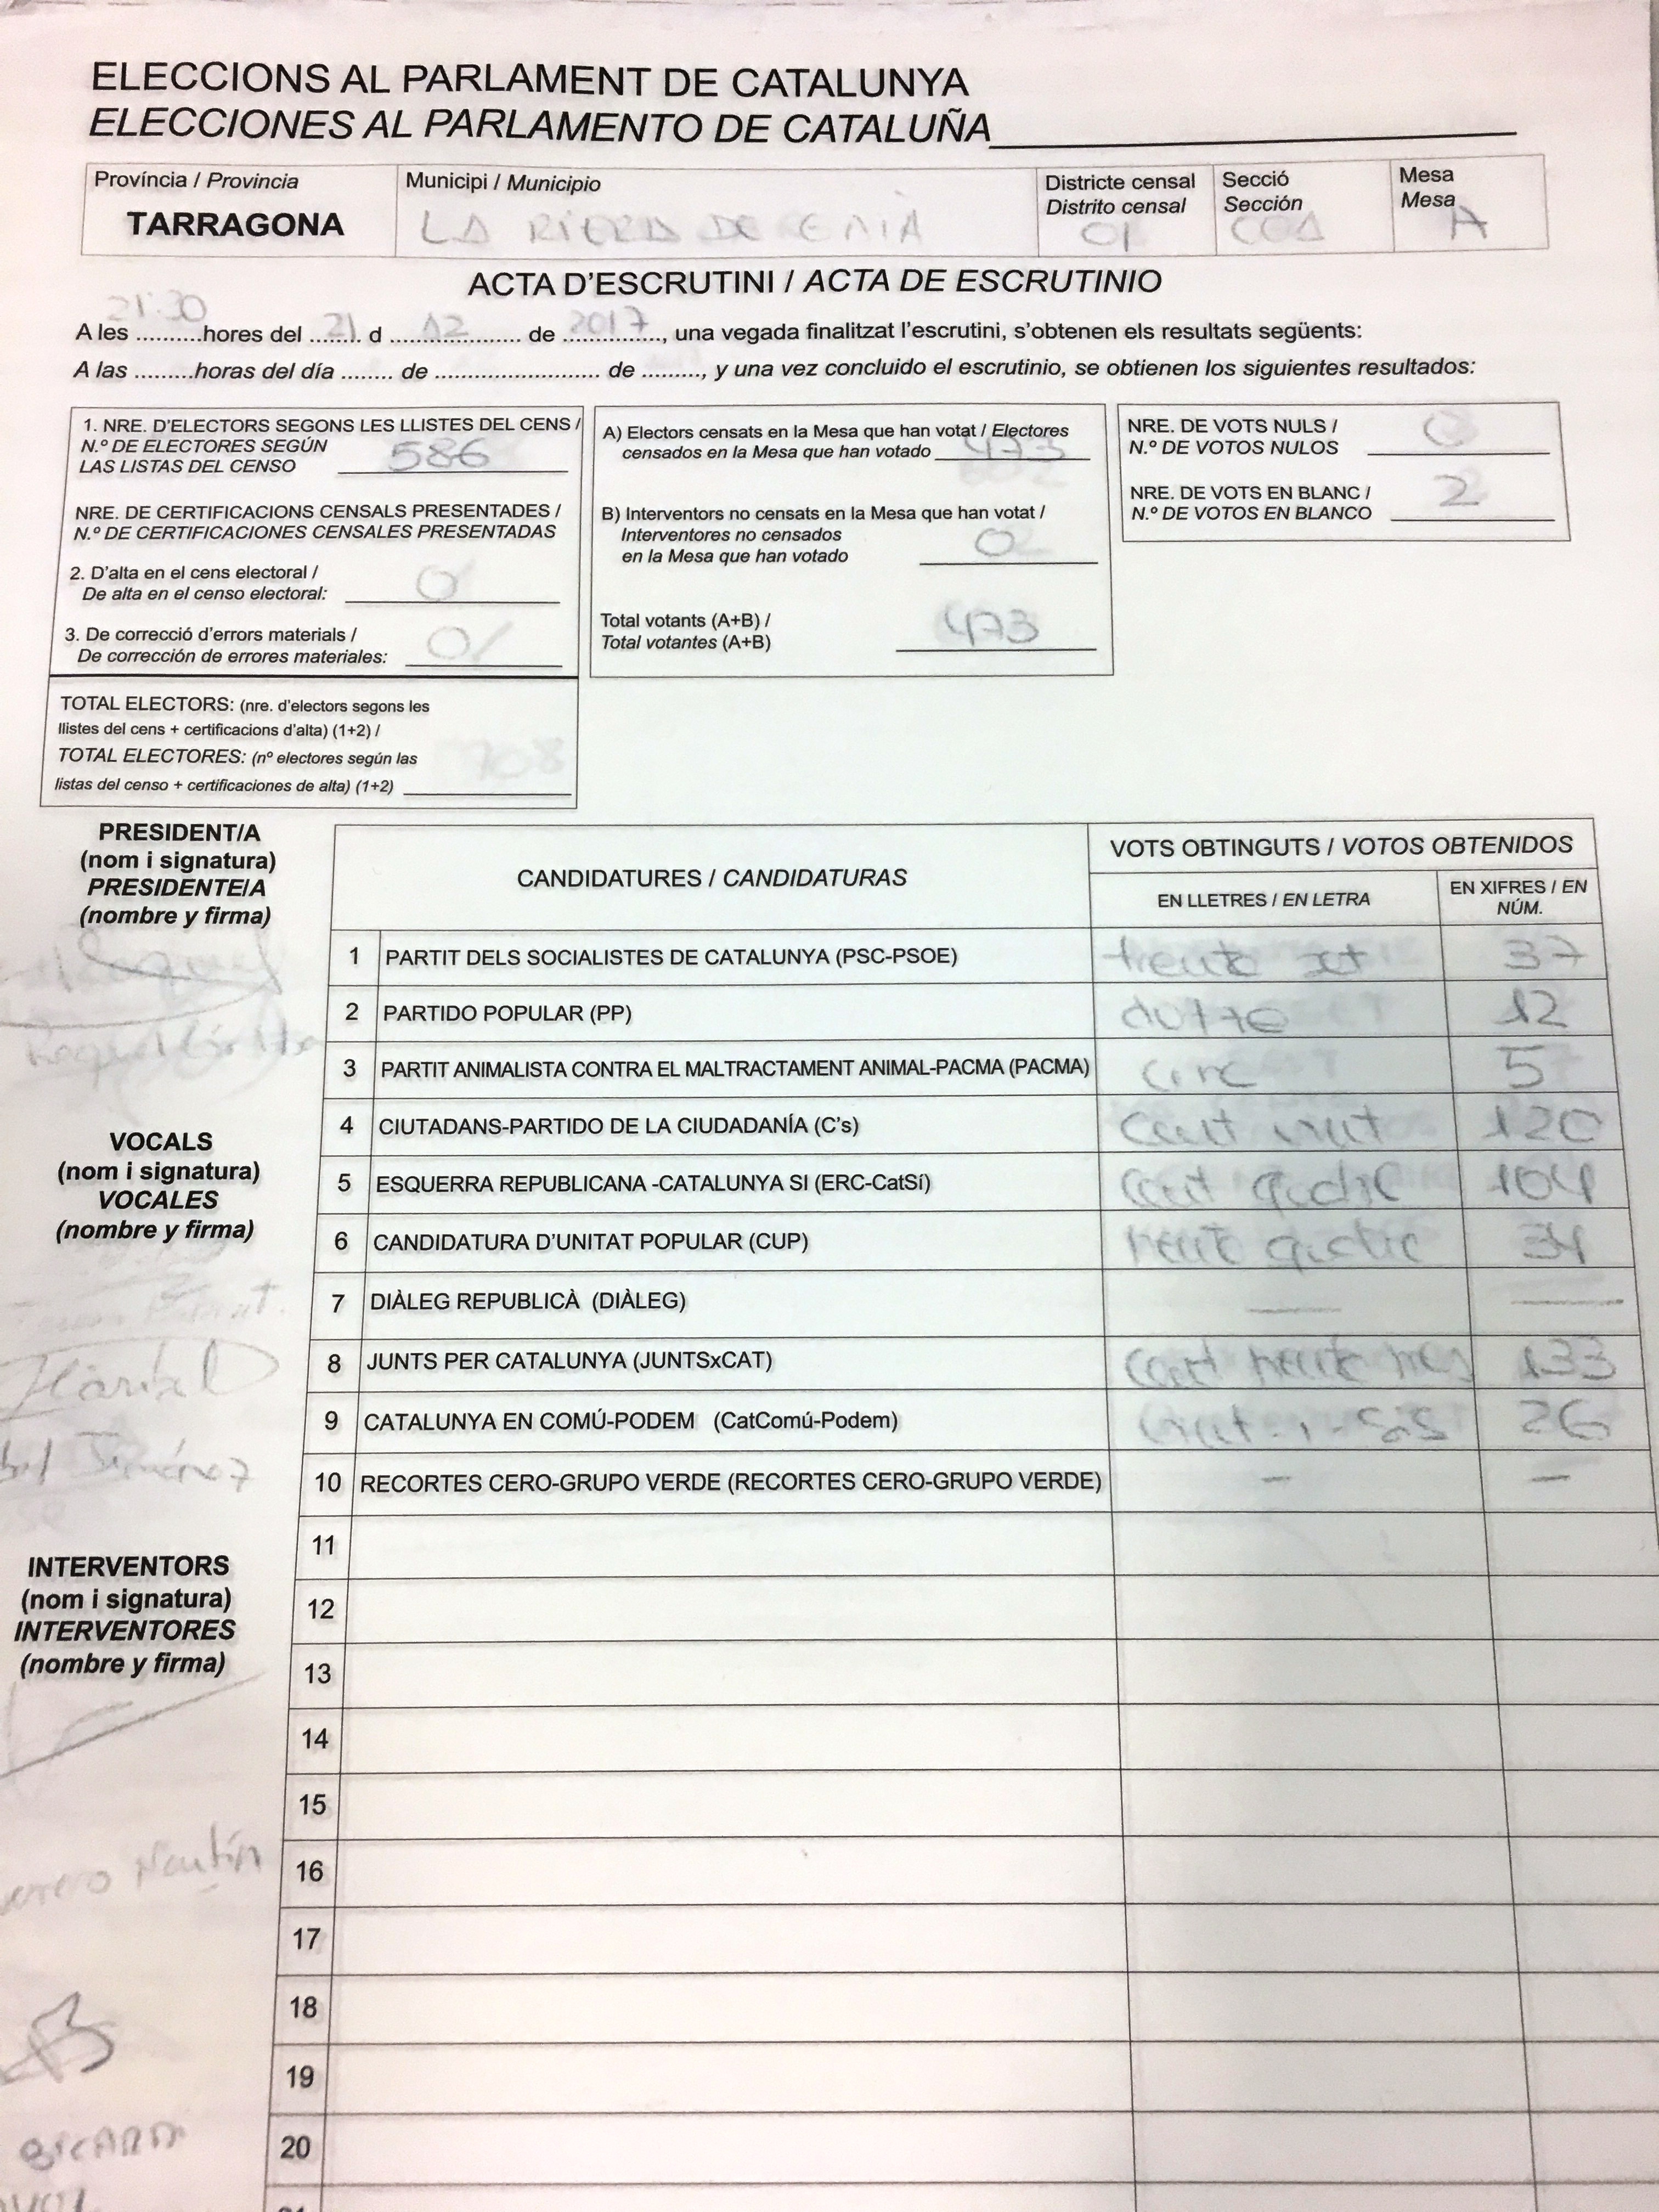 ELECCIONS AL PARLAMENT DE CATALUNYA
ELECCIONES AL PARLAMENTO DE CATALUÑA
Província / Provincia
TARRAGONA
Municipi / Municipio
LA RIERA DE GAIA
Districte censal
Distrito censal
01
Secció
Sección
001
Mesa
Mesa
A
ACTA D'ESCRUTINI / ACTA DE ESCRUTINIO
21:30
A les ..........hores del 21 d 12 de 2017, una vegada finalitzat l'escrutini, s'obtenen els resultats següents:
A las .........horas del día ........ de ............................ de ........., y una vez concluido el escrutinio, se obtienen los siguientes resultados:
1. NRE. D'ELECTORS SEGONS LES LLISTES DEL CENS /
N.º DE ELECTORES SEGÚN
LAS LISTAS DEL CENSO 586
NRE. DE CERTIFICACIONS CENSALS PRESENTADES /
N.º DE CERTIFICACIONES CENSALES PRESENTADAS
2. D'alta en el cens electoral /
De alta en el censo electoral: 0
3. De correcció d'errors materials /
De corrección de errores materiales: 0
TOTAL ELECTORS: (nre. d'electors segons les
llistes del cens + certificacions d'alta) (1+2) /
TOTAL ELECTORES: (nº electores según las
listas del censo + certificaciones de alta) (1+2) 708
A) Electors censats en la Mesa que han votat / Electores
censados en la Mesa que han votado 473
B) Interventors no censats en la Mesa que han votat /
Interventores no censados
en la Mesa que han votado 0
Total votants (A+B) /
Total votantes (A+B) 473
NRE. DE VOTS NULS /
N.º DE VOTOS NULOS 0
NRE. DE VOTS EN BLANC /
N.º DE VOTOS EN BLANCO 2
PRESIDENT/A
(nom i signatura)
PRESIDENTE/A
(nombre y firma)
Raquel
VOCALS
(nom i signatura)
VOCALES
(nombre y firma)
Jiménez
INTERVENTORS
(nom i signatura)
INTERVENTORES
(nombre y firma)
CANDIDATURES / CANDIDATURAS
VOTS OBTINGUTS / VOTOS OBTENIDOS
EN LLETRES / EN LETRA
EN XIFRES / EN
NÚM.
1 PARTIT DELS SOCIALISTES DE CATALUNYA (PSC-PSOE) trenta set 37
2 PARTIDO POPULAR (PP) dotze 12
3 PARTIT ANIMALISTA CONTRA EL MALTRACTAMENT ANIMAL-PACMA (PACMA) cinc 5
4 CIUTADANS-PARTIDO DE LA CIUDADANÍA (C's) cent vint 120
5 ESQUERRA REPUBLICANA -CATALUNYA SI (ERC-CatSí) cent quatre 104
6 CANDIDATURA D'UNITAT POPULAR (CUP) trenta quatre 34
7 DIÀLEG REPUBLICÀ (DIÀLEG) — —
8 JUNTS PER CATALUNYA (JUNTSxCAT) cent trenta tres 133
9 CATALUNYA EN COMÚ-PODEM (CatComú-Podem) vint-i-sis 26
10 RECORTES CERO-GRUPO VERDE (RECORTES CERO-GRUPO VERDE) — —
11
12
13
14
15
16
17
18
19
20